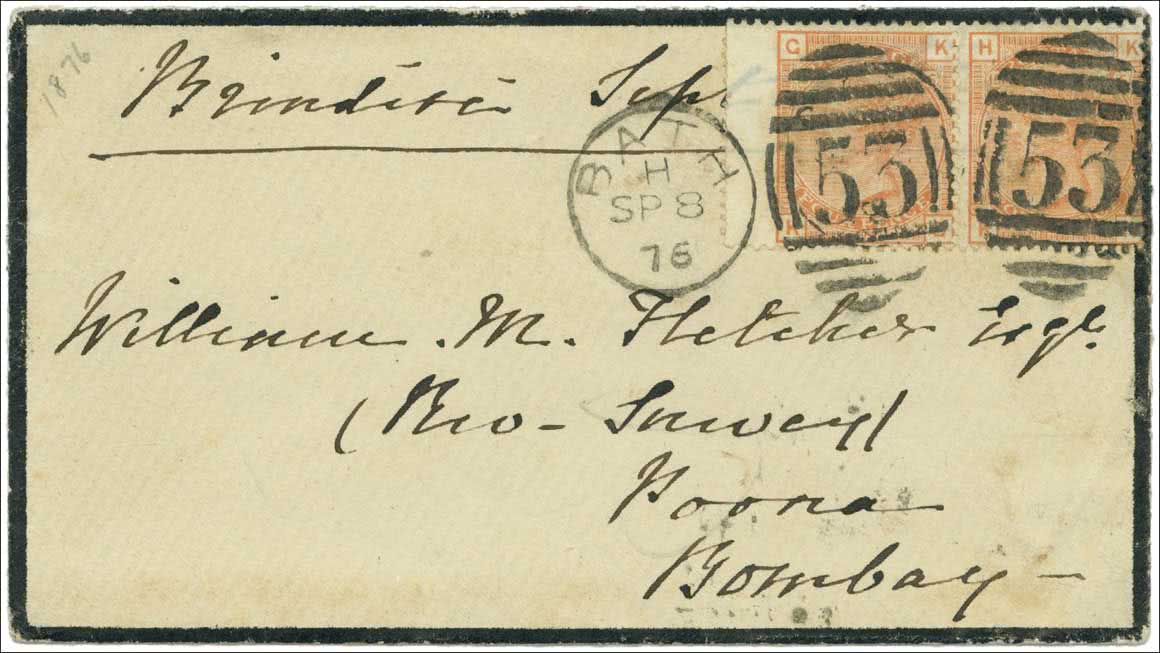 1876
Brindisi Sep.
G K H K
BATH
H
SP 8
76
53 53
William. M. Fletcher Esqr.
(Rev - Survey)
Poona
Bombay -